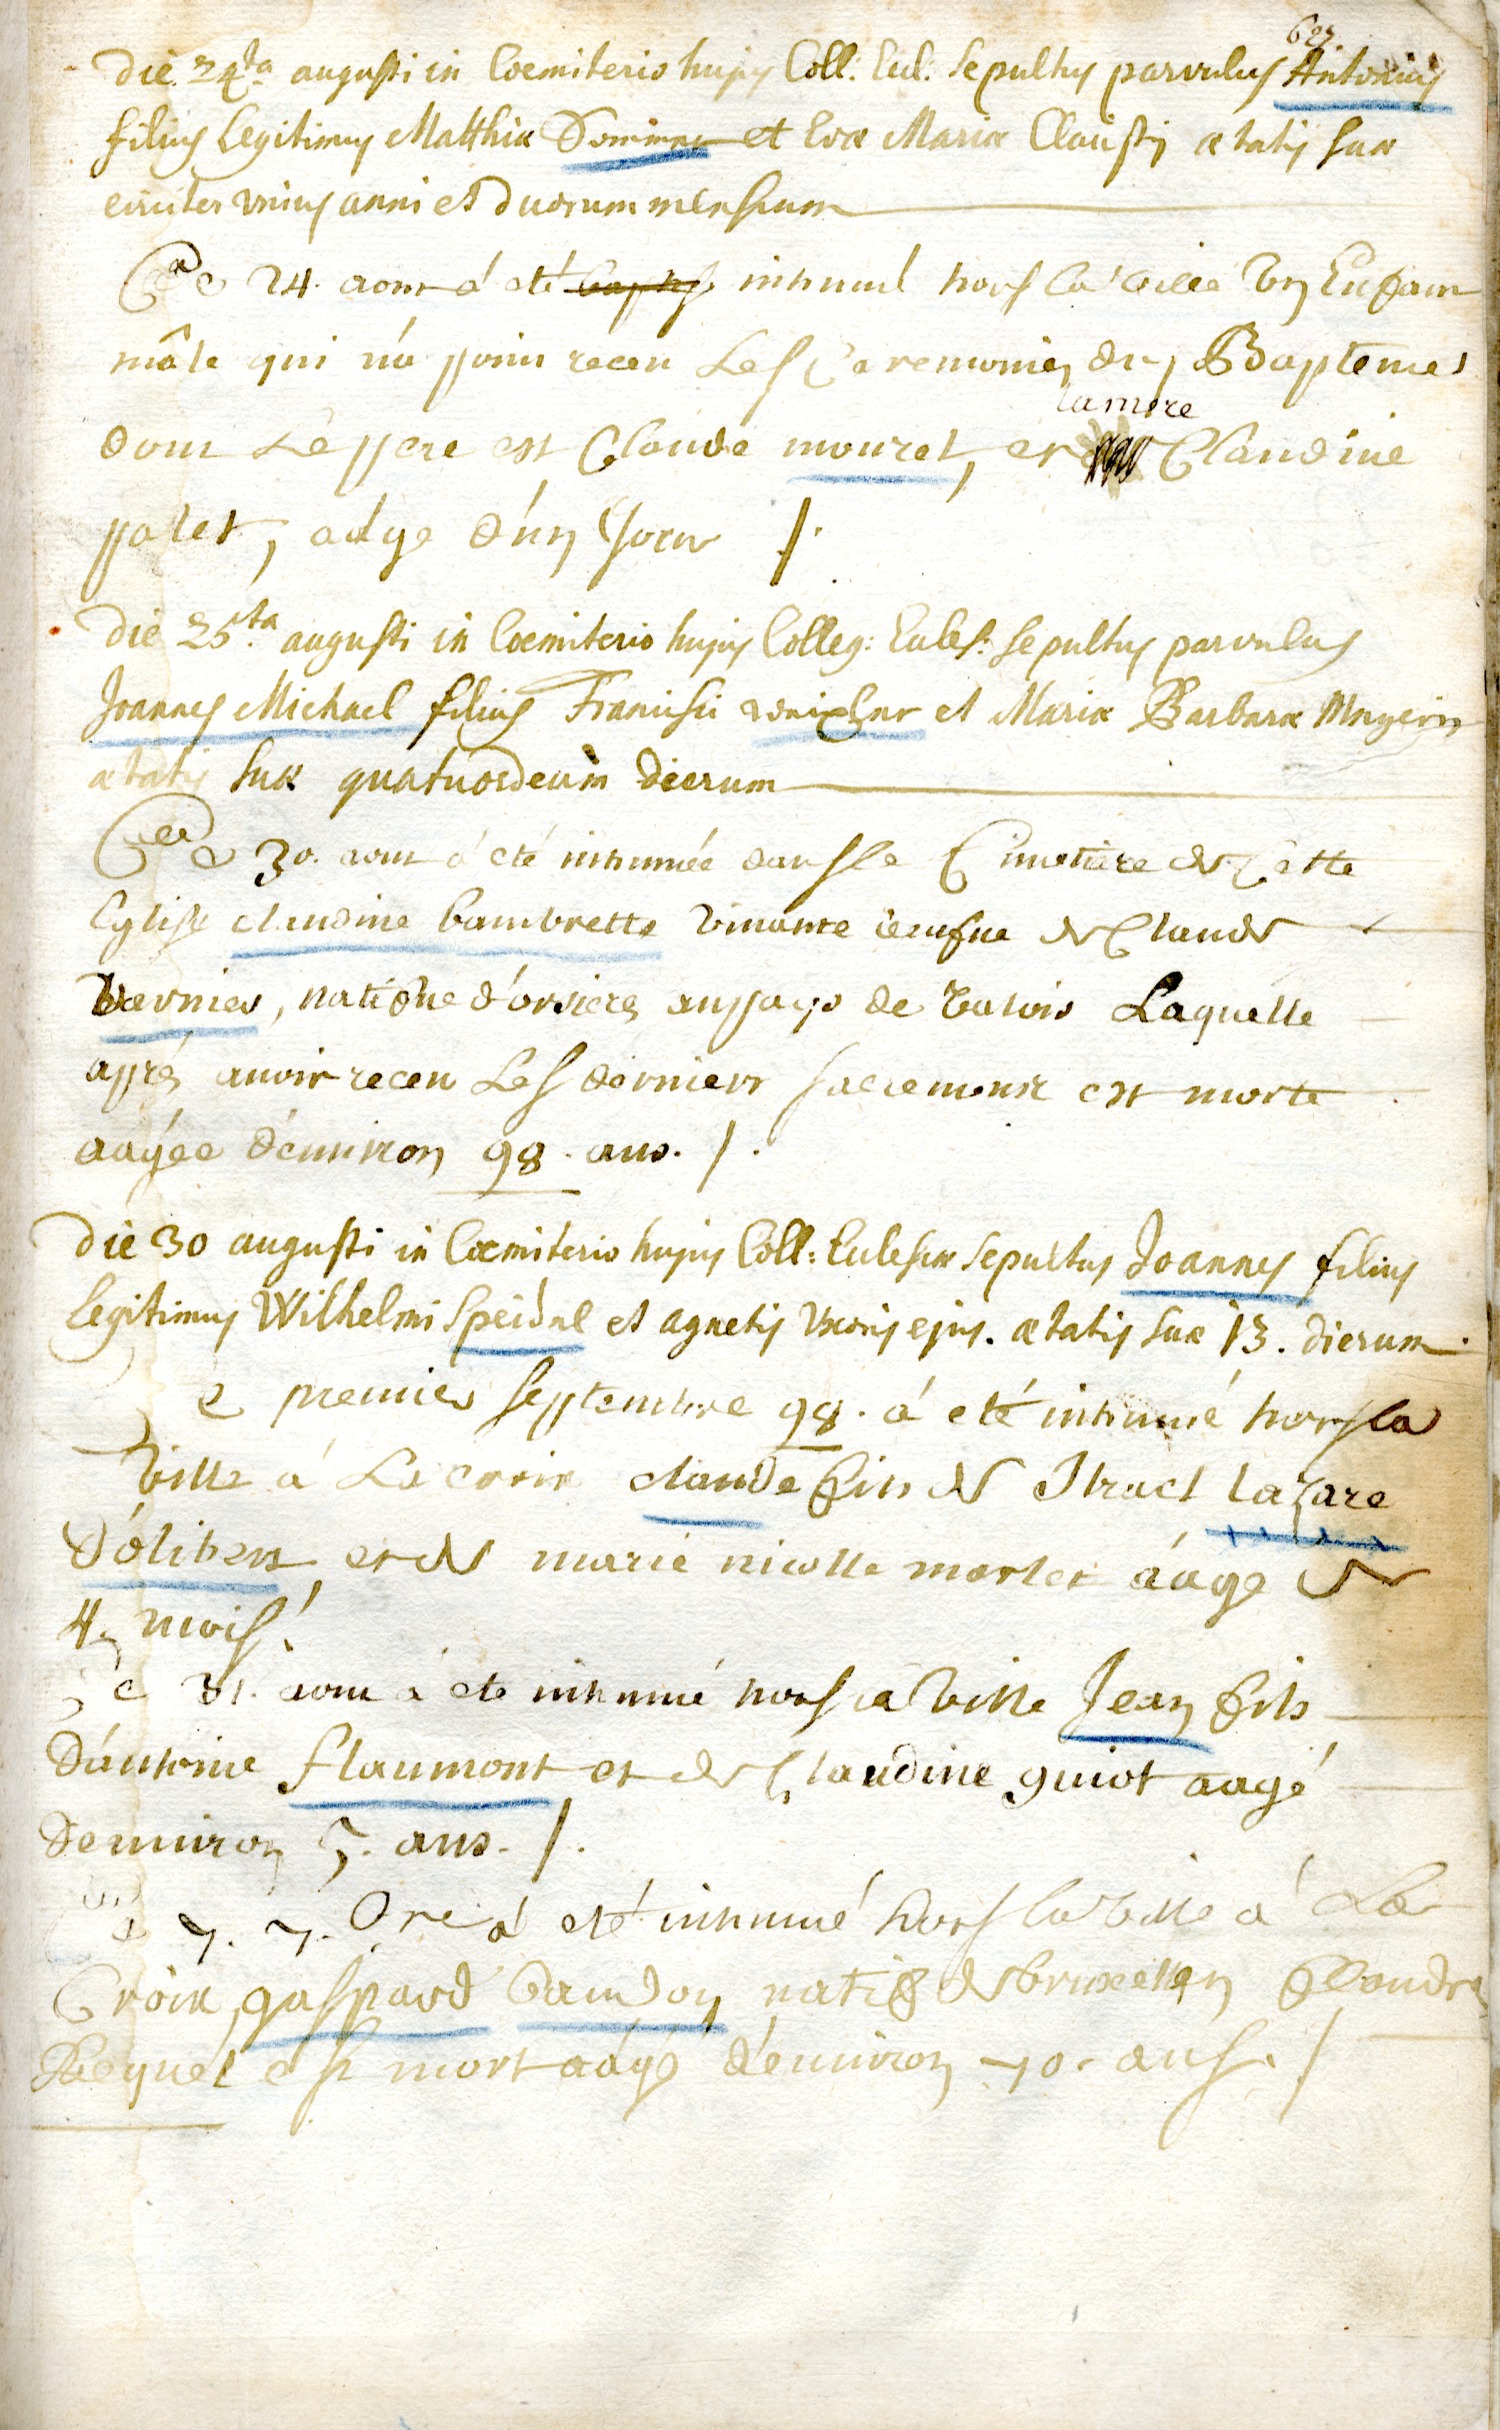 627.
Die 24ta augusti in Coemiterio hujus Coll: Eccl: Sepultus parvulus Antonius
filius Legitimus Matthiæ et Evæ Mariæ ætatis suæ
circiter unius anni et duorum mensium
Ce 24. aout á eté baptisé inhumé hors la ville un Enfant
mâle qui n'a point receu Les Ceremonies du Baptemes
la mere
dont Le pere est Claude mouret, et Claudine
patet, adge d'un Jour /.
Die 25ta augusti in Coemiterio hujus Colleg: Eccles: Sepultus parvulus
Joannes Michael filius Francisci et Mariæ Barbaræ Mayerin
ætatis suæ quatuordecim Dierum
Ce 30. aout á eté inhumée dans le Cimetiere de Cette
Eglise claudine bambrette vivante veufue de Claude
Vernier, natiфue d'orsieres au pays de valois Laquelle
aprés auoir receu Les derniers sacremens est morte
aagée d'enuiron 98. ans. /.
Die 30 augusti in Coemiterio hujus Coll: Ecclesiæ Sepultus Joannes filius
Legitimus Wilhelmi Speidel et agnetis Uxoris ejus. ætatis suæ 13. Dierum.
Le premier septembre 98. á eté inhumé hors la
Ville á La croix claude fils de Israel Lazare
D'olivers et de marie nicolle aágé de
4 mois.
Ce 31. aout á eté inhumé hors la Ville Jean fils
D'antoine flaumont et de Claudine guiot aagé
D'enuiron 5. ans. /.
Ce 7. 7.bre á eté inhumé hors la Ville á La
Croix, gaspard baudoy natif de bruxelles en flandre
Lequel est mort aágé d'enuiron 70. ans. /